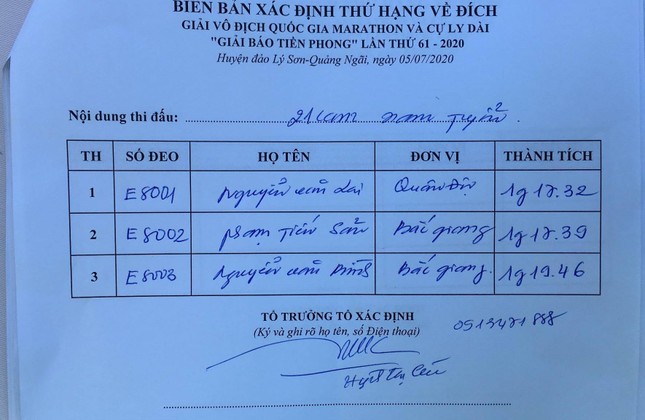 BIÊN BẢN XÁC ĐỊNH THỨ HẠNG VỀ ĐÍCH
GIẢI VÔ ĐỊCH QUỐC GIA MARATHON VÀ CỰ LY DÀI
"GIẢI BÁO TIỀN PHONG" LẦN THỨ 61 - 2020
Huyện đảo Lý Sơn-Quảng Ngãi, ngày 05/07/2020
Nội dung thi đấu: 21km nam tuyển
TH SỐ ĐEO HỌ TÊN ĐƠN VỊ THÀNH TÍCH
1 E8001 Nguyễn văn Lai Quân Đội 1g17.32
2 E8002 Phạm Tiến Sản Bắc giang 1g17.39
3 E8003 Nguyễn văn Bắc giang 1g19.46
TỔ TRƯỞNG TỔ XÁC ĐỊNH
(Ký và ghi rõ họ tên, số Điện thoại)